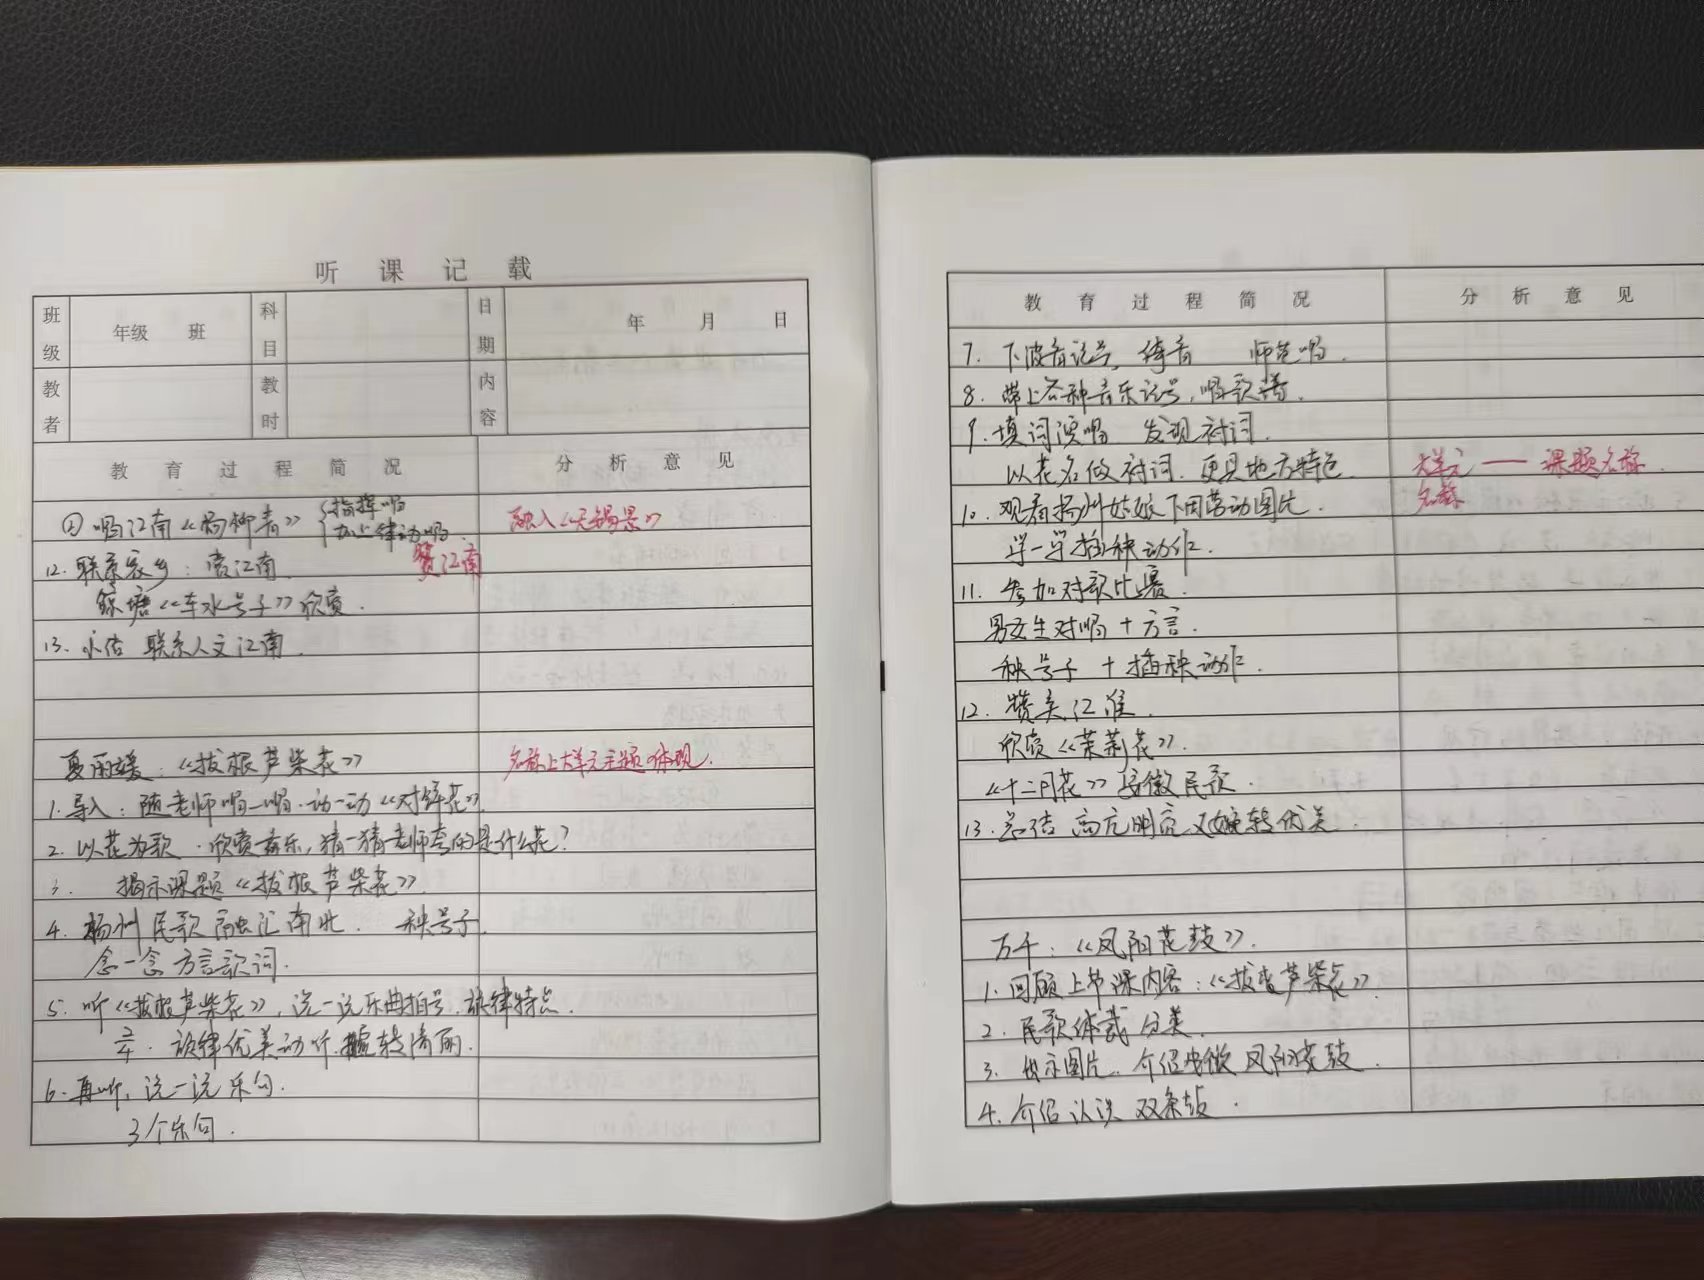 听课记载
班级 年级 班 科目 日期 年 月 日
教者 教时 内容
教育过程简况 分析意见
④ 唱江南《杨柳青》 指挥唱 融入《无锡景》
加上律动唱
12. 联系家乡：赏江南. 赞江南
《车水号子》欣赏.
13. 小结 联系人文江南.
夏丽媛：《拔根芦柴花》 名称上大单元主题体现.
1. 导入：随老师唱一唱.动一动《对鲜花》
2. 以花为歌.欣赏音乐,猜一猜老师夸的是什么花?
3. 揭示课题《拔根芦柴花》.
4. 扬州民歌融汇南北. 秧号子.
念一念方言歌词.
5. 听《拔根芦柴花》,说一说乐曲拍号.旋律特点.
2/4. 旋律优美动听.婉转清丽.
6. 再听,说一说乐句.
3个乐句.
教育过程简况 分析意见
7. 下波音记号,倚音 师范唱.
8. 带上各种音乐记号,唱歌谱.
9. 填词演唱 发现衬词.
以花名做衬词.更具地方特色. 大单元——课题名称.
名称
10. 观看扬州姑娘下田劳动图片.
学一学插秧动作.
11. 参加对歌比赛.
男女生对唱+方言.
秧号子+插秧动作.
12. 赞美江淮.
欣赏《茉莉花》.
《十二月花》安徽民歌.
13. 总结 高亢明亮又婉转优美.
万千：《凤阳花鼓》.
1. 回顾上节课内容：《拔根芦柴花》.
2. 民歌体裁分类.
3. 出示图片.介绍安徽凤阳花鼓.
4. 介绍认识双条鼓.